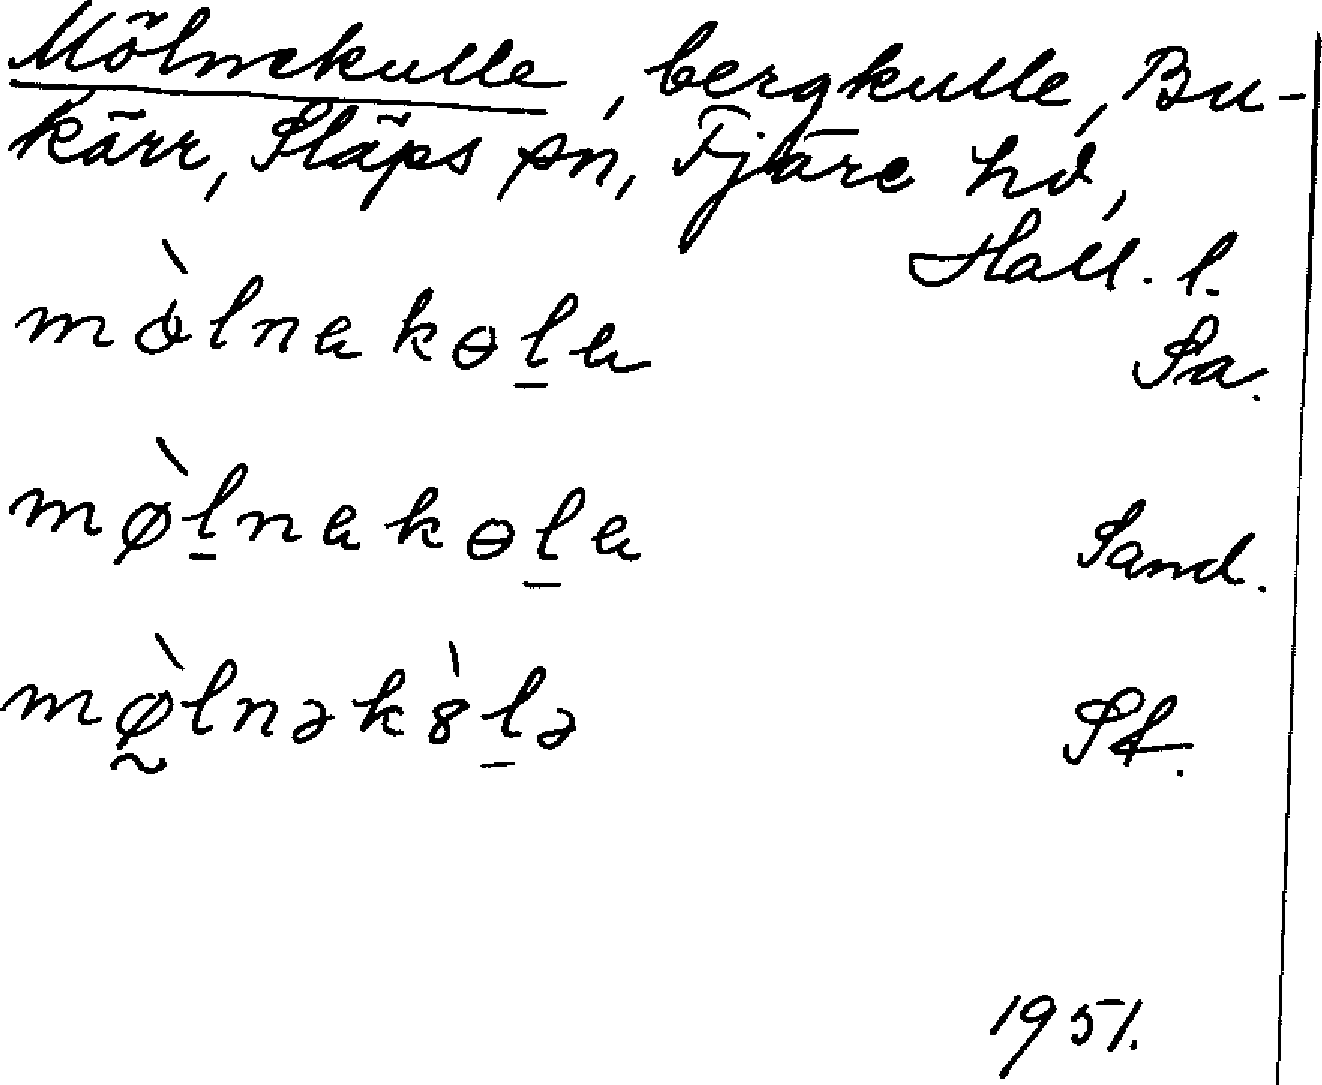 Mölnekulle, bergkulle, Bu-
kärr, Släps sn, Fjäre hd,
Hall. l.
mòlnakɵl̠a Sa.
mø̀l̠nakɵl̠a Sand.
mø̰̀lnək8̀l̠ə Sf.
1951.